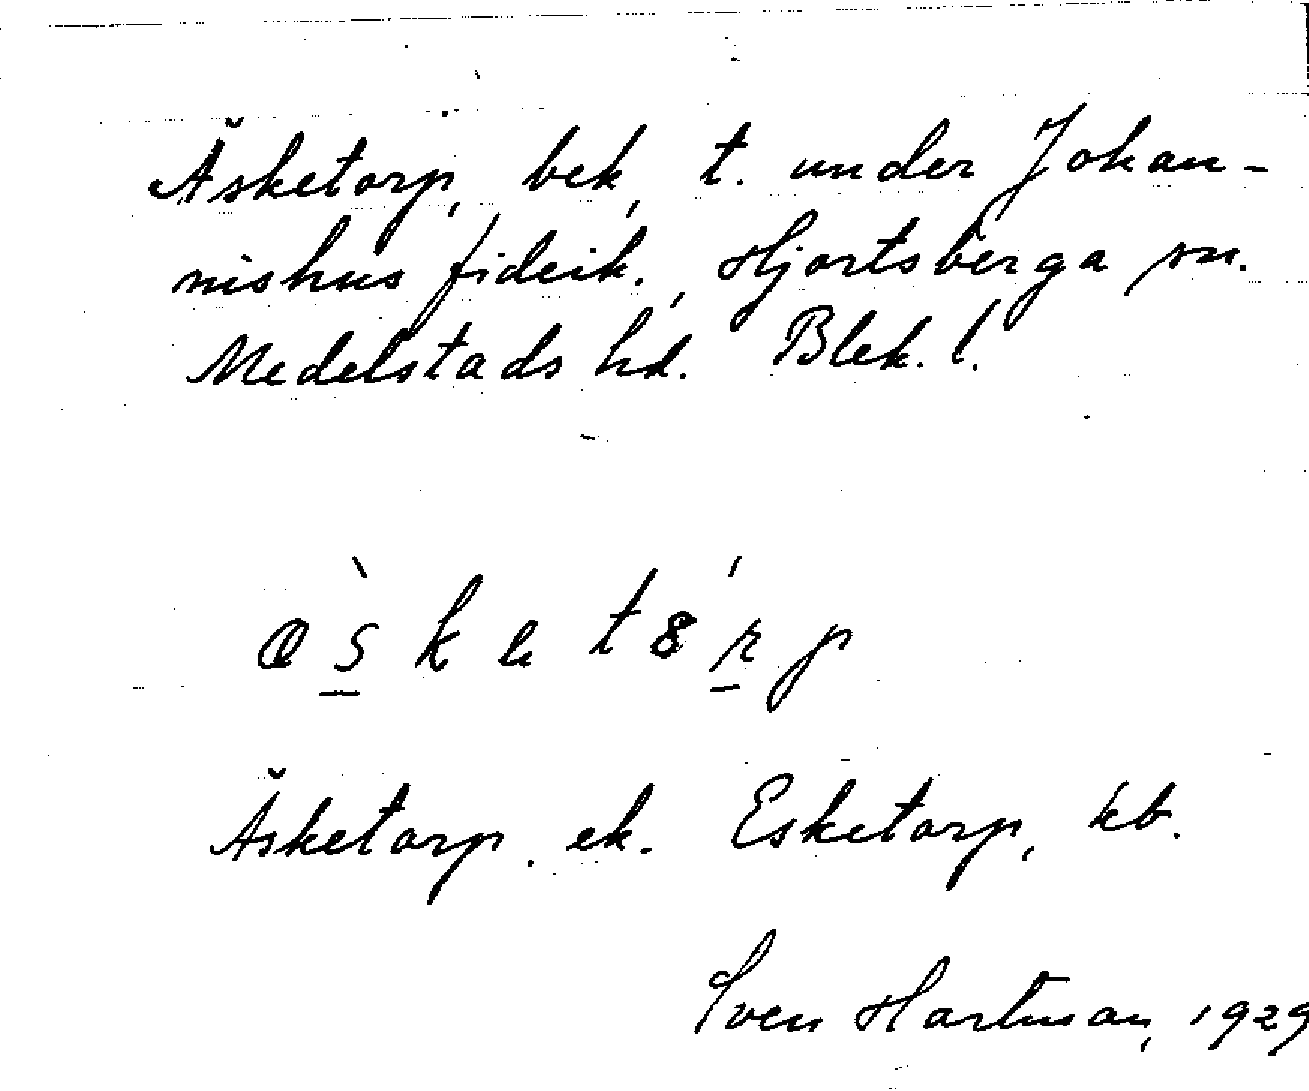 Äsketorp, bek, t. under Johan-
nishus fideik., Hjortsberga sn.
Medelstads hd. Blek. l.
Äsketorp. ek. Esketorp, kb.
Sven Hartman, 1929